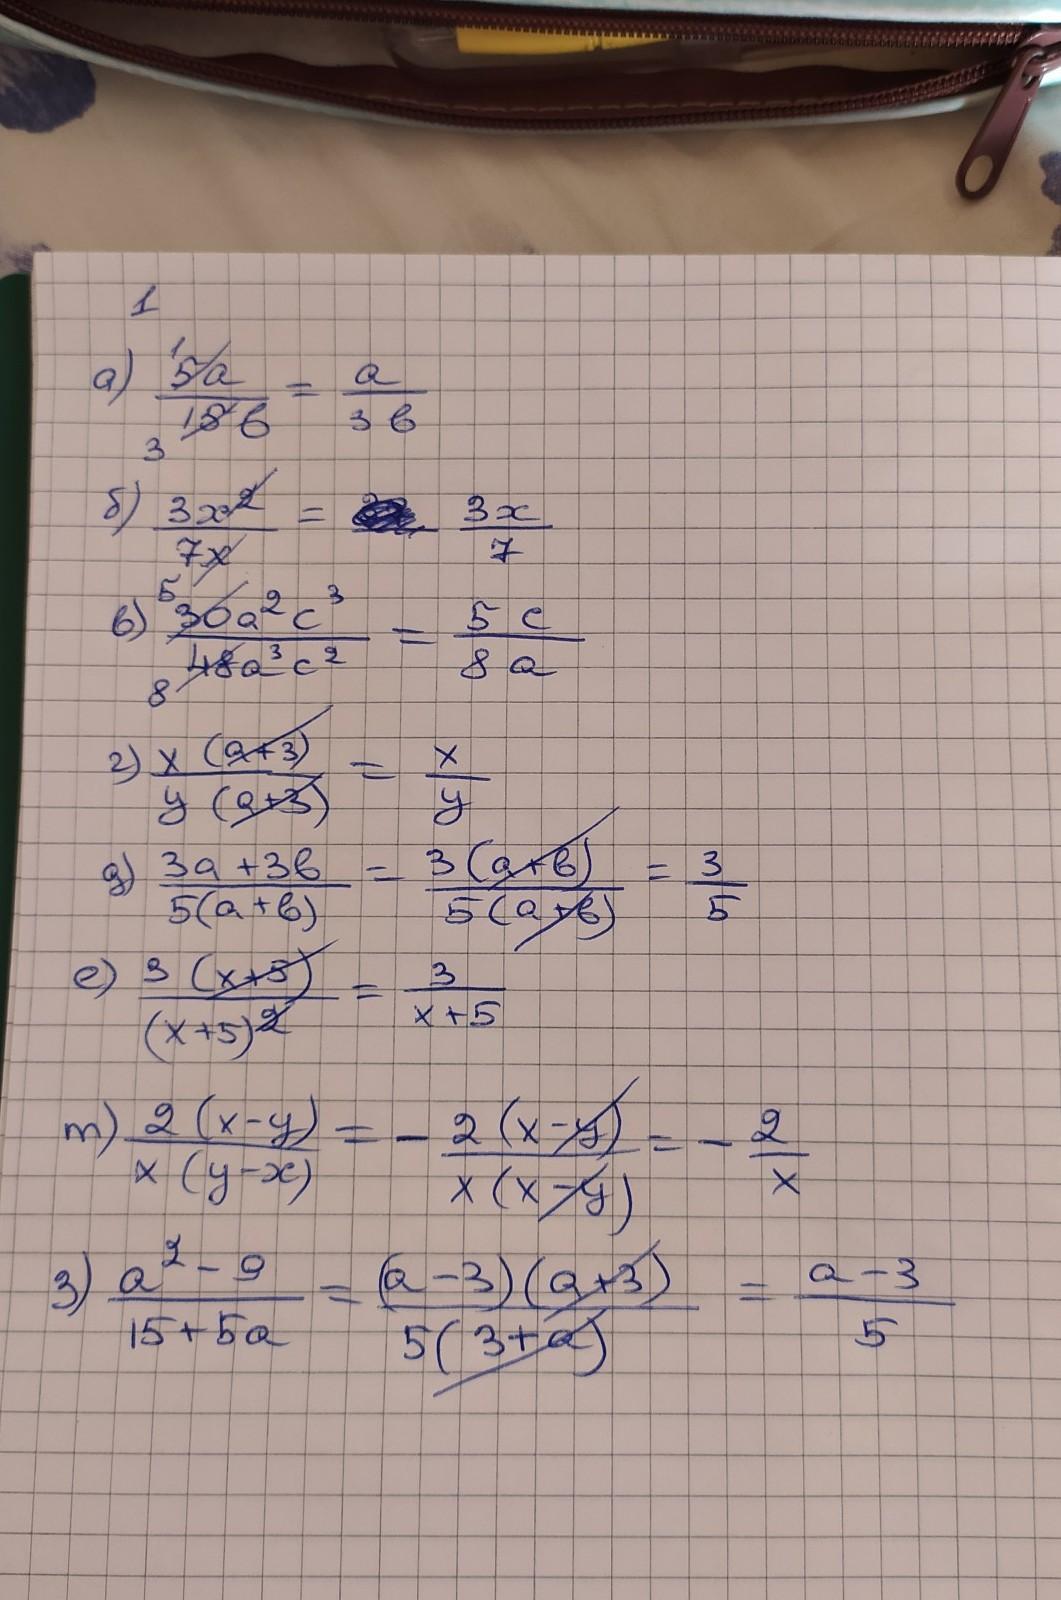 1
а) 5a/15b = a/3b
1
3
б) 3x²/7x = 3x/7
в) 30a²c³/48a³c² = 5c/8a
5
8
г) x(a+3)/y(a+3) = x/y
д) 3a+3b/5(a+b) = 3(a+b)/5(a+b) = 3/5
е) 3(x+5)/(x+5)² = 3/x+5
m) 2(x-y)/x(y-x) = - 2(x-y)/x(x-y) = - 2/x
з) a²-9/15+5a = (a-3)(a+3)/5(3+a) = a-3/5